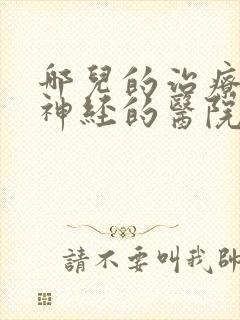 哪兒的治療
神经的醫院
請不要叫我帥